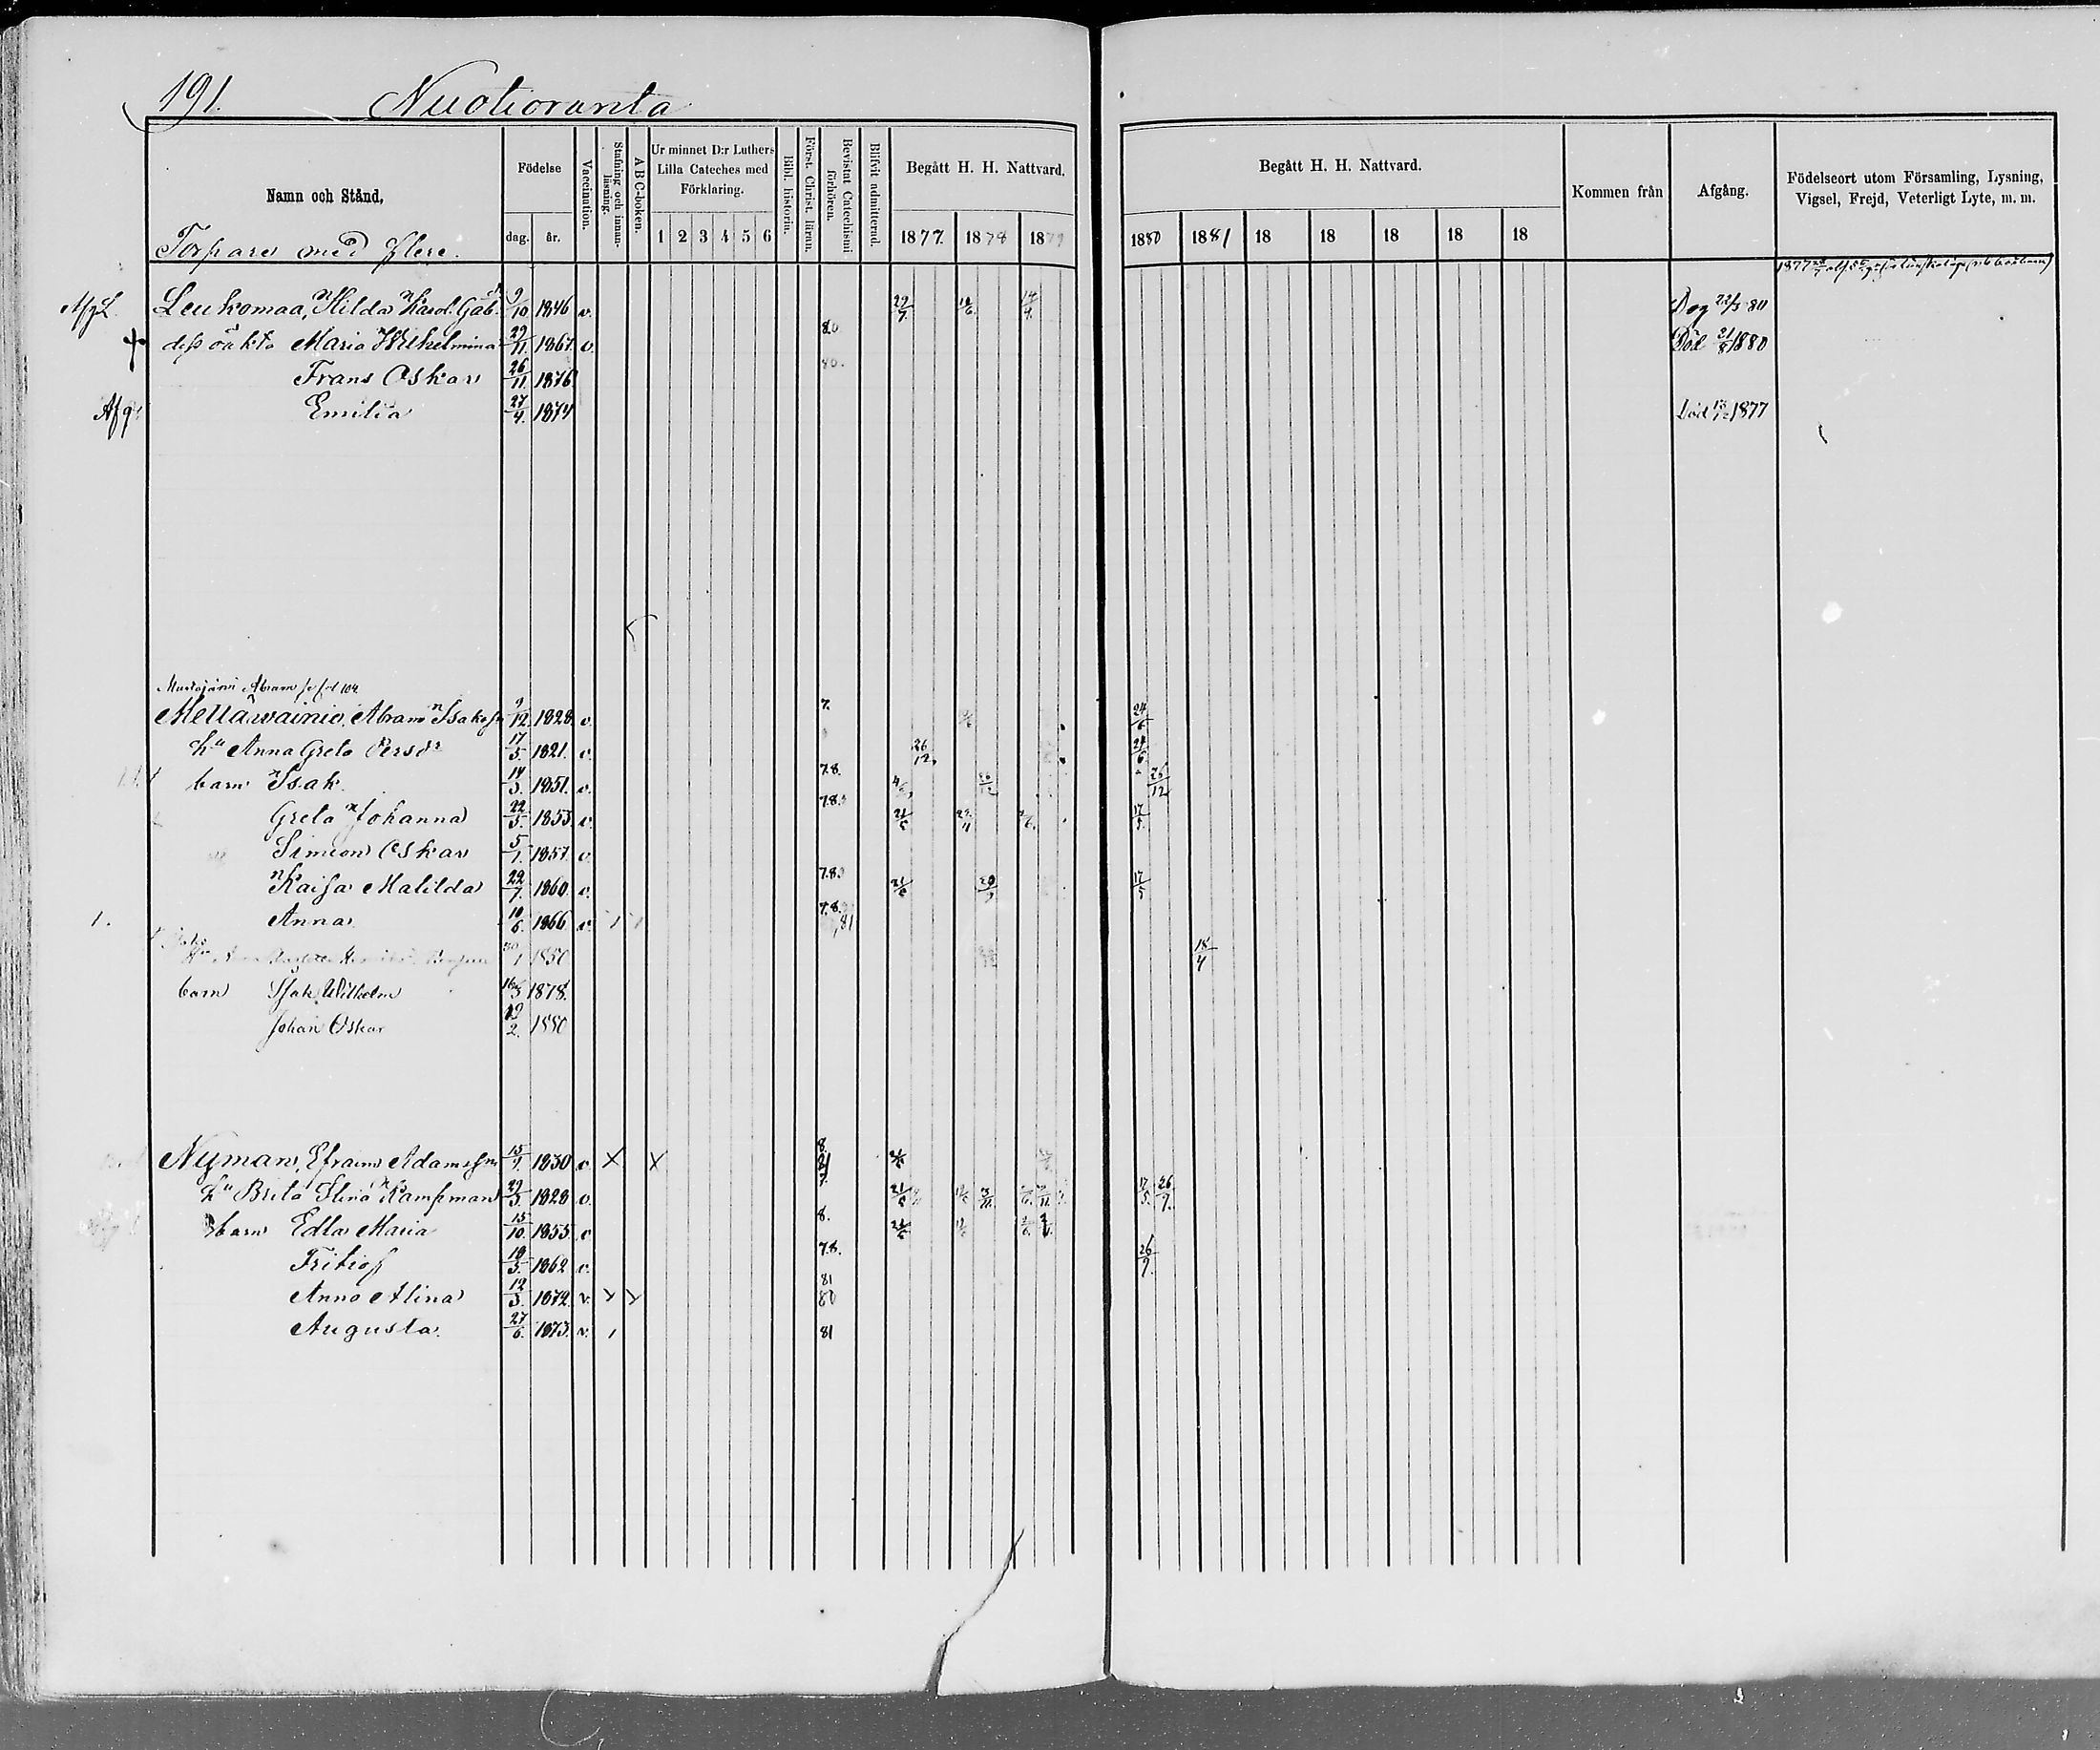 191. Nuotioranta
Namn och Stånd,
Födelse
dag. år.
Vaccination.
Stafning och innanläsning.
A B C-boken.
Ur minnet D:r Luthers Lilla Cateches med Förklaring.
1 2 3 4 5 6
Bibl. historia.
Först. Christ. läran.
Bevistat Catechismi förhören.
Blifvit admitterad.
Begått H. H. Nattvard.
1877. 1878 1879
Begått H. H. Nattvard.
1880 1881 18 18 18 18 18
Kommen från
Afgång.
Födelseort utom Församling, Lysning, Vigsel, Frejd, Veterligt Lyte, m. m.
Torpare med flere.
Leukomaa, Hilda Karol. Gab. 9/10 1846 v. Dog 22/5 80
dess oäkta Maria Wilhelmina 29/11 1867 v. 80 Död 21/8 1880
Frans Oskar 26/11 1876 80.
Afg. Emilia 27/4 1874 Död 13/12 1877
Abram 104
Mellåwainio, Abram Isaksson 9/12 1828 v. 7. 24/6
hu Anna Greta Persdr 17/5 1821. v. 26/12 24/6
barn Isak 14/3 1851. v. 7.8. 26/12
Greta Johanna 22/5 1853 v. 7.8. 21/5 17/5
Simeon Oskar 5/1 1857 v.
Kaisa Matilda 22/7 1860 v. 7.8. 17/5
1. Anna 10/6 1866 v. 7.8. 81
hu 30/1 1850 18/4
barn Isak Wilhelm 16/5 1878.
Johan Oskar 19/2 1880
Nyman, Efraim Adamsson 15/9 1830 v. X X 8 81
hu Brita Stina Kampman 29/3 1828 v. 7. 21/5 17/5 26/9
barn Edla Maria 15/10 1855 v 8.
Fritiof 18/5 1862 v. 7.8. 26/9
Anna Alina 12/3 1872. v. 81 80
Augusta. 27/6 1873. v. 81